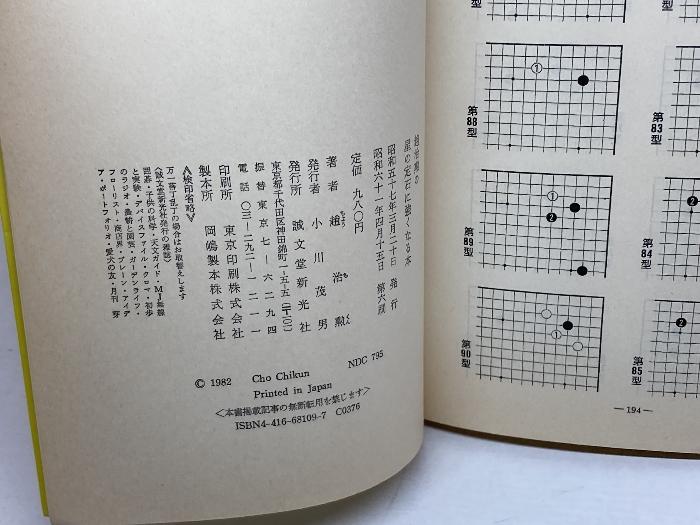 趙治勲の
星の定石に強くなる本
昭和五十七年三月二十日 発行
昭和六十一年四月十五日 第六版
定価 九八〇円
著者 趙治勲
ちょう ち くん
発行者 小川茂男
発行所 誠文堂新光社
東京都千代田区神田錦町一-五-五(〒一〇一)
振替東京七-六二九四
電話〇三-二九二-一二一一
印刷所 東京印刷株式会社
製本所 岡嶋製本株式会社
≪検印省略≫
万一落丁乱丁の場合はお取替えします
〈誠文堂新光社発行の雑誌〉
囲碁・子供の科学・天文ガイド・MJ無線
と実験・デバイスファイル・クロマ・初歩
のラジオ・農耕と園芸・ガーデンライフ・
フローリスト・商店界・ブレーン・アイデ
ア・ポートフォリオ・愛犬の友・月刊 芽
NDC 795
© 1982 Cho Chikun
Printed in Japan
<本書掲載記事の無断転用を禁じます>
ISBN4-416-68109-7 C0376
第88型
①
第83型
第89型
①
❷
第84型
❷
第90型
①
第85型
❷
— 194 —